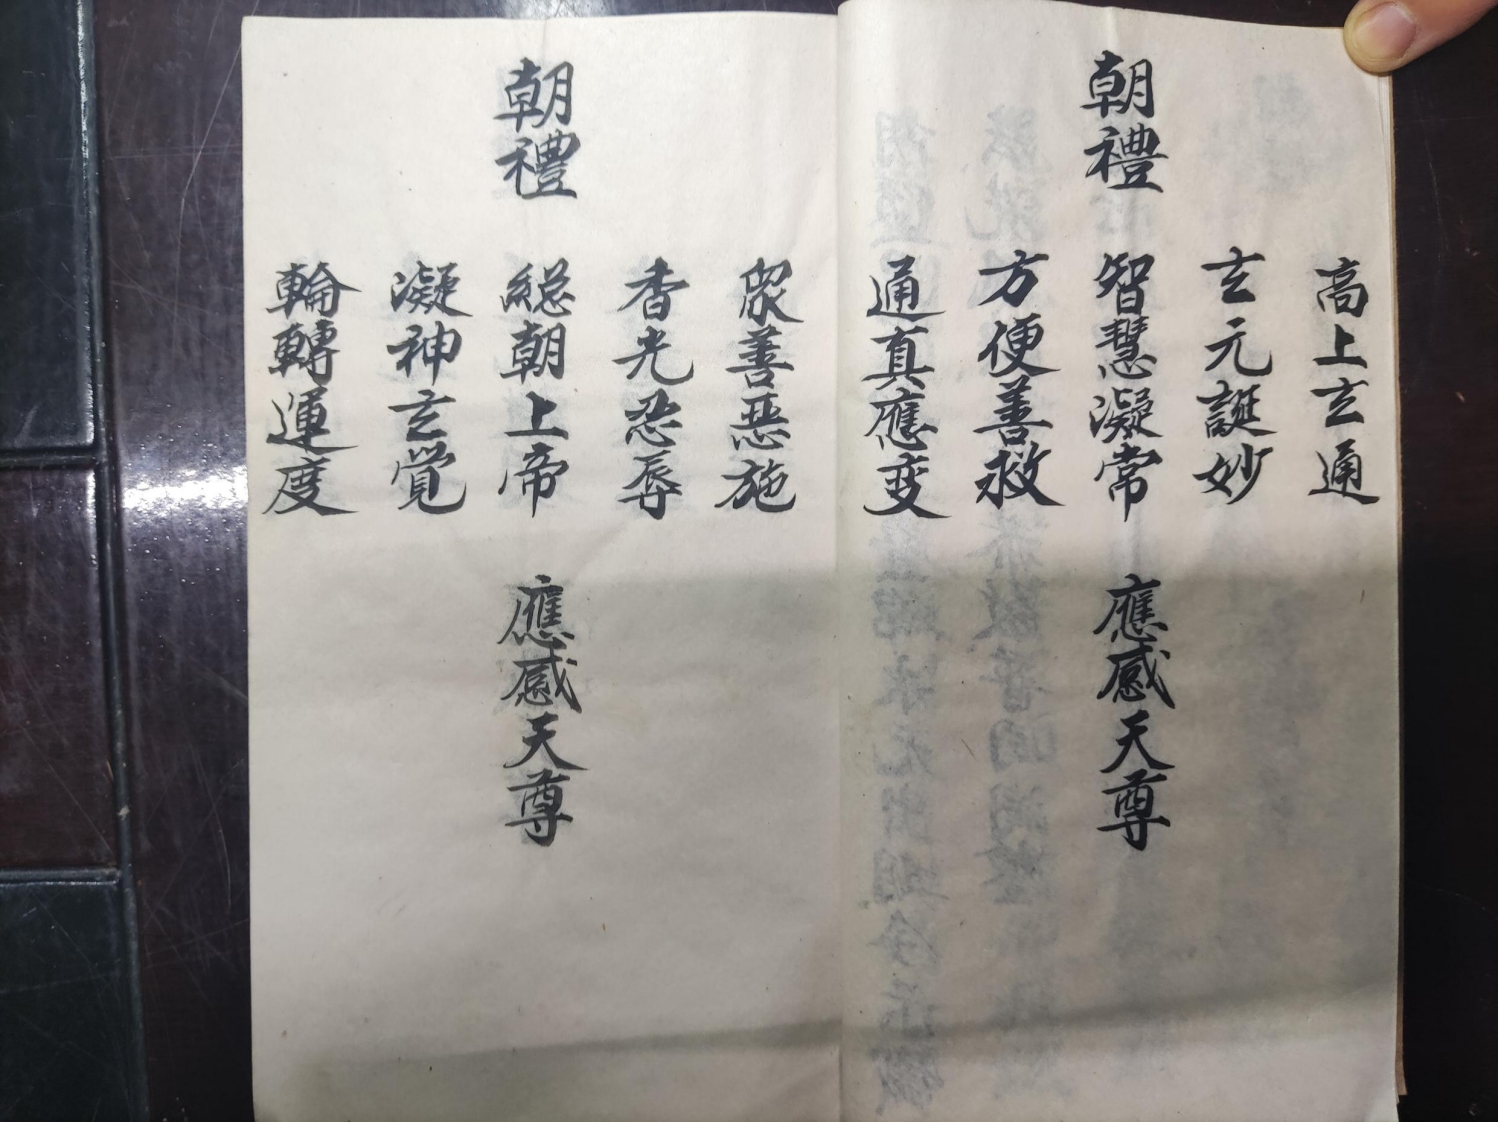 高上玄通
玄元誕妙
朝禮
智慧凝常
應感天尊
方便善救
通真應变
眾善惡施
香光忍辱
朝禮
総朝上帝
應感天尊
凝神玄覺
輪轉運度